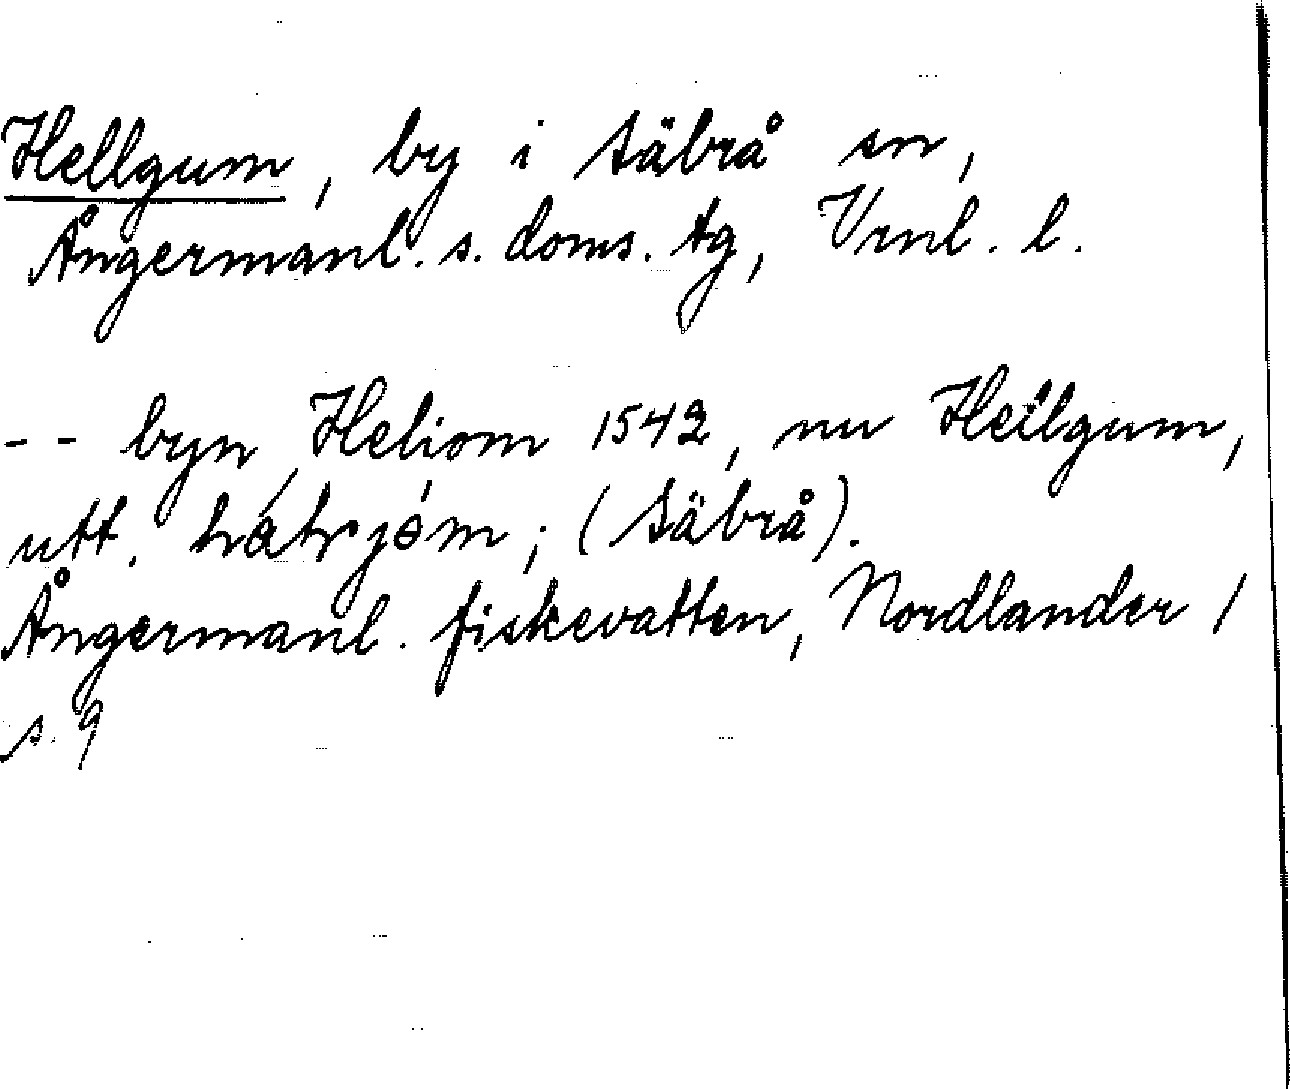 Hellgum, by i Säbrå sn,
Ångermanl. s. doms. tg, Vrnl. l.
-- byn Heliom 1542, nu Hellgum,
utt. ; (Säbrå).
Ångermanl. fiskevatten, Nordlander /
s. 9